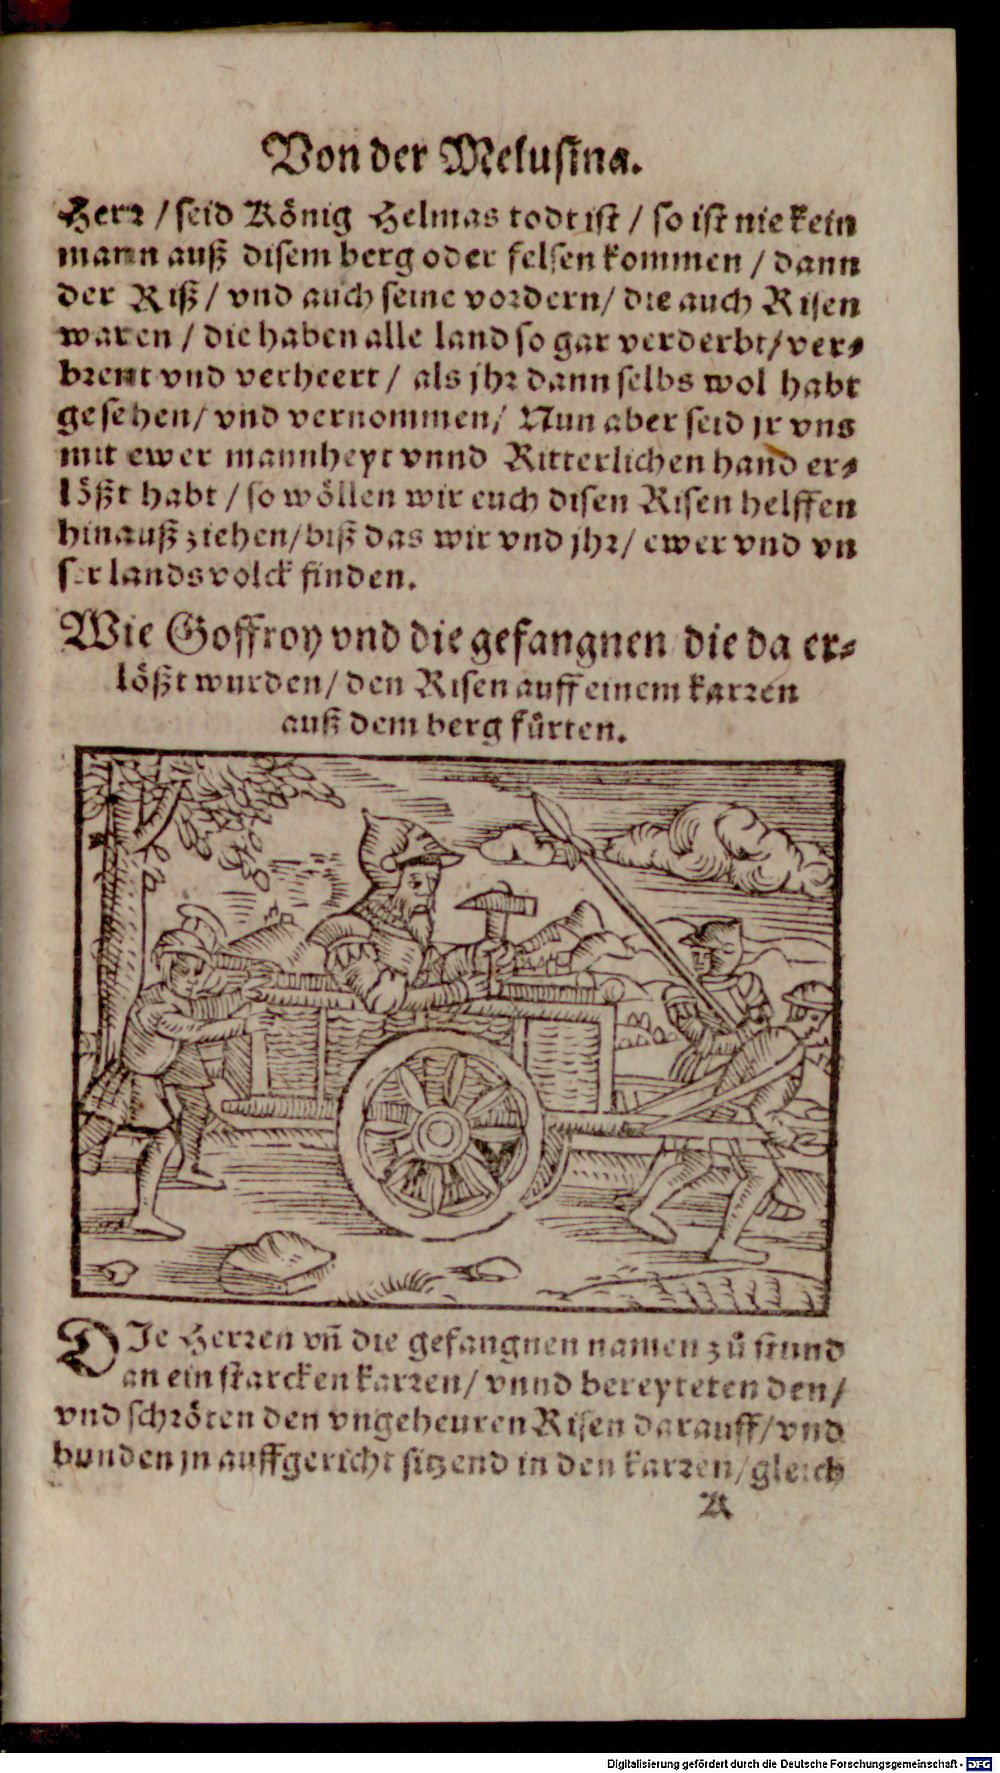 Von der Melusina.
Herr / seid König Helmas todt ist / so ist nie kein
mann auß disem berg oder felsen kommen / dann
der Riß / vnd auch seine vordern / die auch Risen
waren / die haben alle land so gar verderbt / ver⸗
brent vnd verheert / als jhr dann selbs wol habt
gesehen / vnd vernommen / Nun aber seid jr vns
mit ewer mannheyt vnnd Ritterlichen hand er⸗
lößt habt / so wöllen wir euch disen Risen helffen
hinauß ziehen / biß das wir vnd jhr / ewer vnd vn
ser landsvolck finden.
Wie Goffroy vnd die gefangnen die da er⸗
lößt wurden / den Risen auff einem karren
auß dem berg fůrten.
DIe Herren vñ die gefangnen namen zů stund
an ein starcken karren / vnnd bereyteten den /
vnd schröten den vngeheuren Risen darauff / vnd
bunden jn auffgericht sitzend in den karren / gleich
A
Digitalisierung gefördert durch die Deutsche Forschungsgemeinschaft - DFG